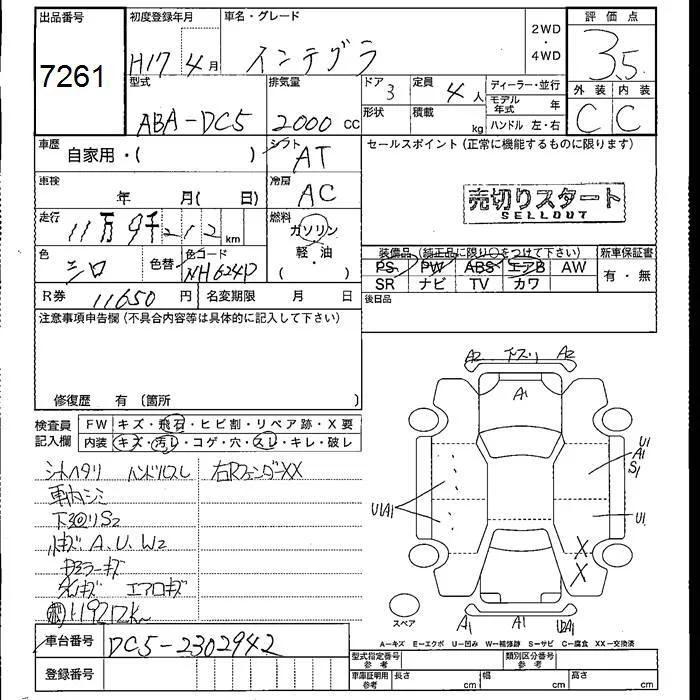 出品番号 初度登録年月 車名・グレード 2WD ・ 4WD 評価点
7261 H17年4月 インテグラ 3.5
型式 排気量 ドア 3 定員 4人 ディーラー・並行 外装 内装
ABA-DC5 2000cc 形状 積載 kg モデル年式 年 C C
ハンドル 左・右
車歴 自家用・( ) シフト AT セールスポイント (正常に機能するものに限ります)
車検 年 月( 日) 冷房 AC 売切りスタート
SELLOUT
走行 11万9千212km 燃料 ガソリン
軽・油
色 シロ 色替 色コード NH624P 装備品 (純正品に限り○をつけて下さい) 新車保証書
PS PW ABS エアB AW 有・無
SR ナビ TV カワ
R券 11650円 名変期限 月 日 後日品
注意事項申告欄(不具合内容等は具体的に記入して下さい)
修復歴 有 (箇所 )
検査員記入欄 FW キズ・飛石・ヒビ割・リペア跡・X要
内装 キズ・汚レ・コゲ・穴・スレ・キレ・破レ
シートヘタリ ハンドルスレ 右RフェンダーXX
車内シミ
下回りS2
A、U、W2
エアロキズ
119212km
A2 A2
A1
U1 A1 S1
U1A1 U1
X
X
A1 A1 U2A1
スペア
A-キズ E-エクボ U-凹み W-補修跡 S-サビ C-腐食 XX-交換済
車台番号 DC5-2302942
型式指定番号 参考 類別区分番号 参考
登録番号 車庫証明用 参考 長さ cm 幅 cm 高さ cm